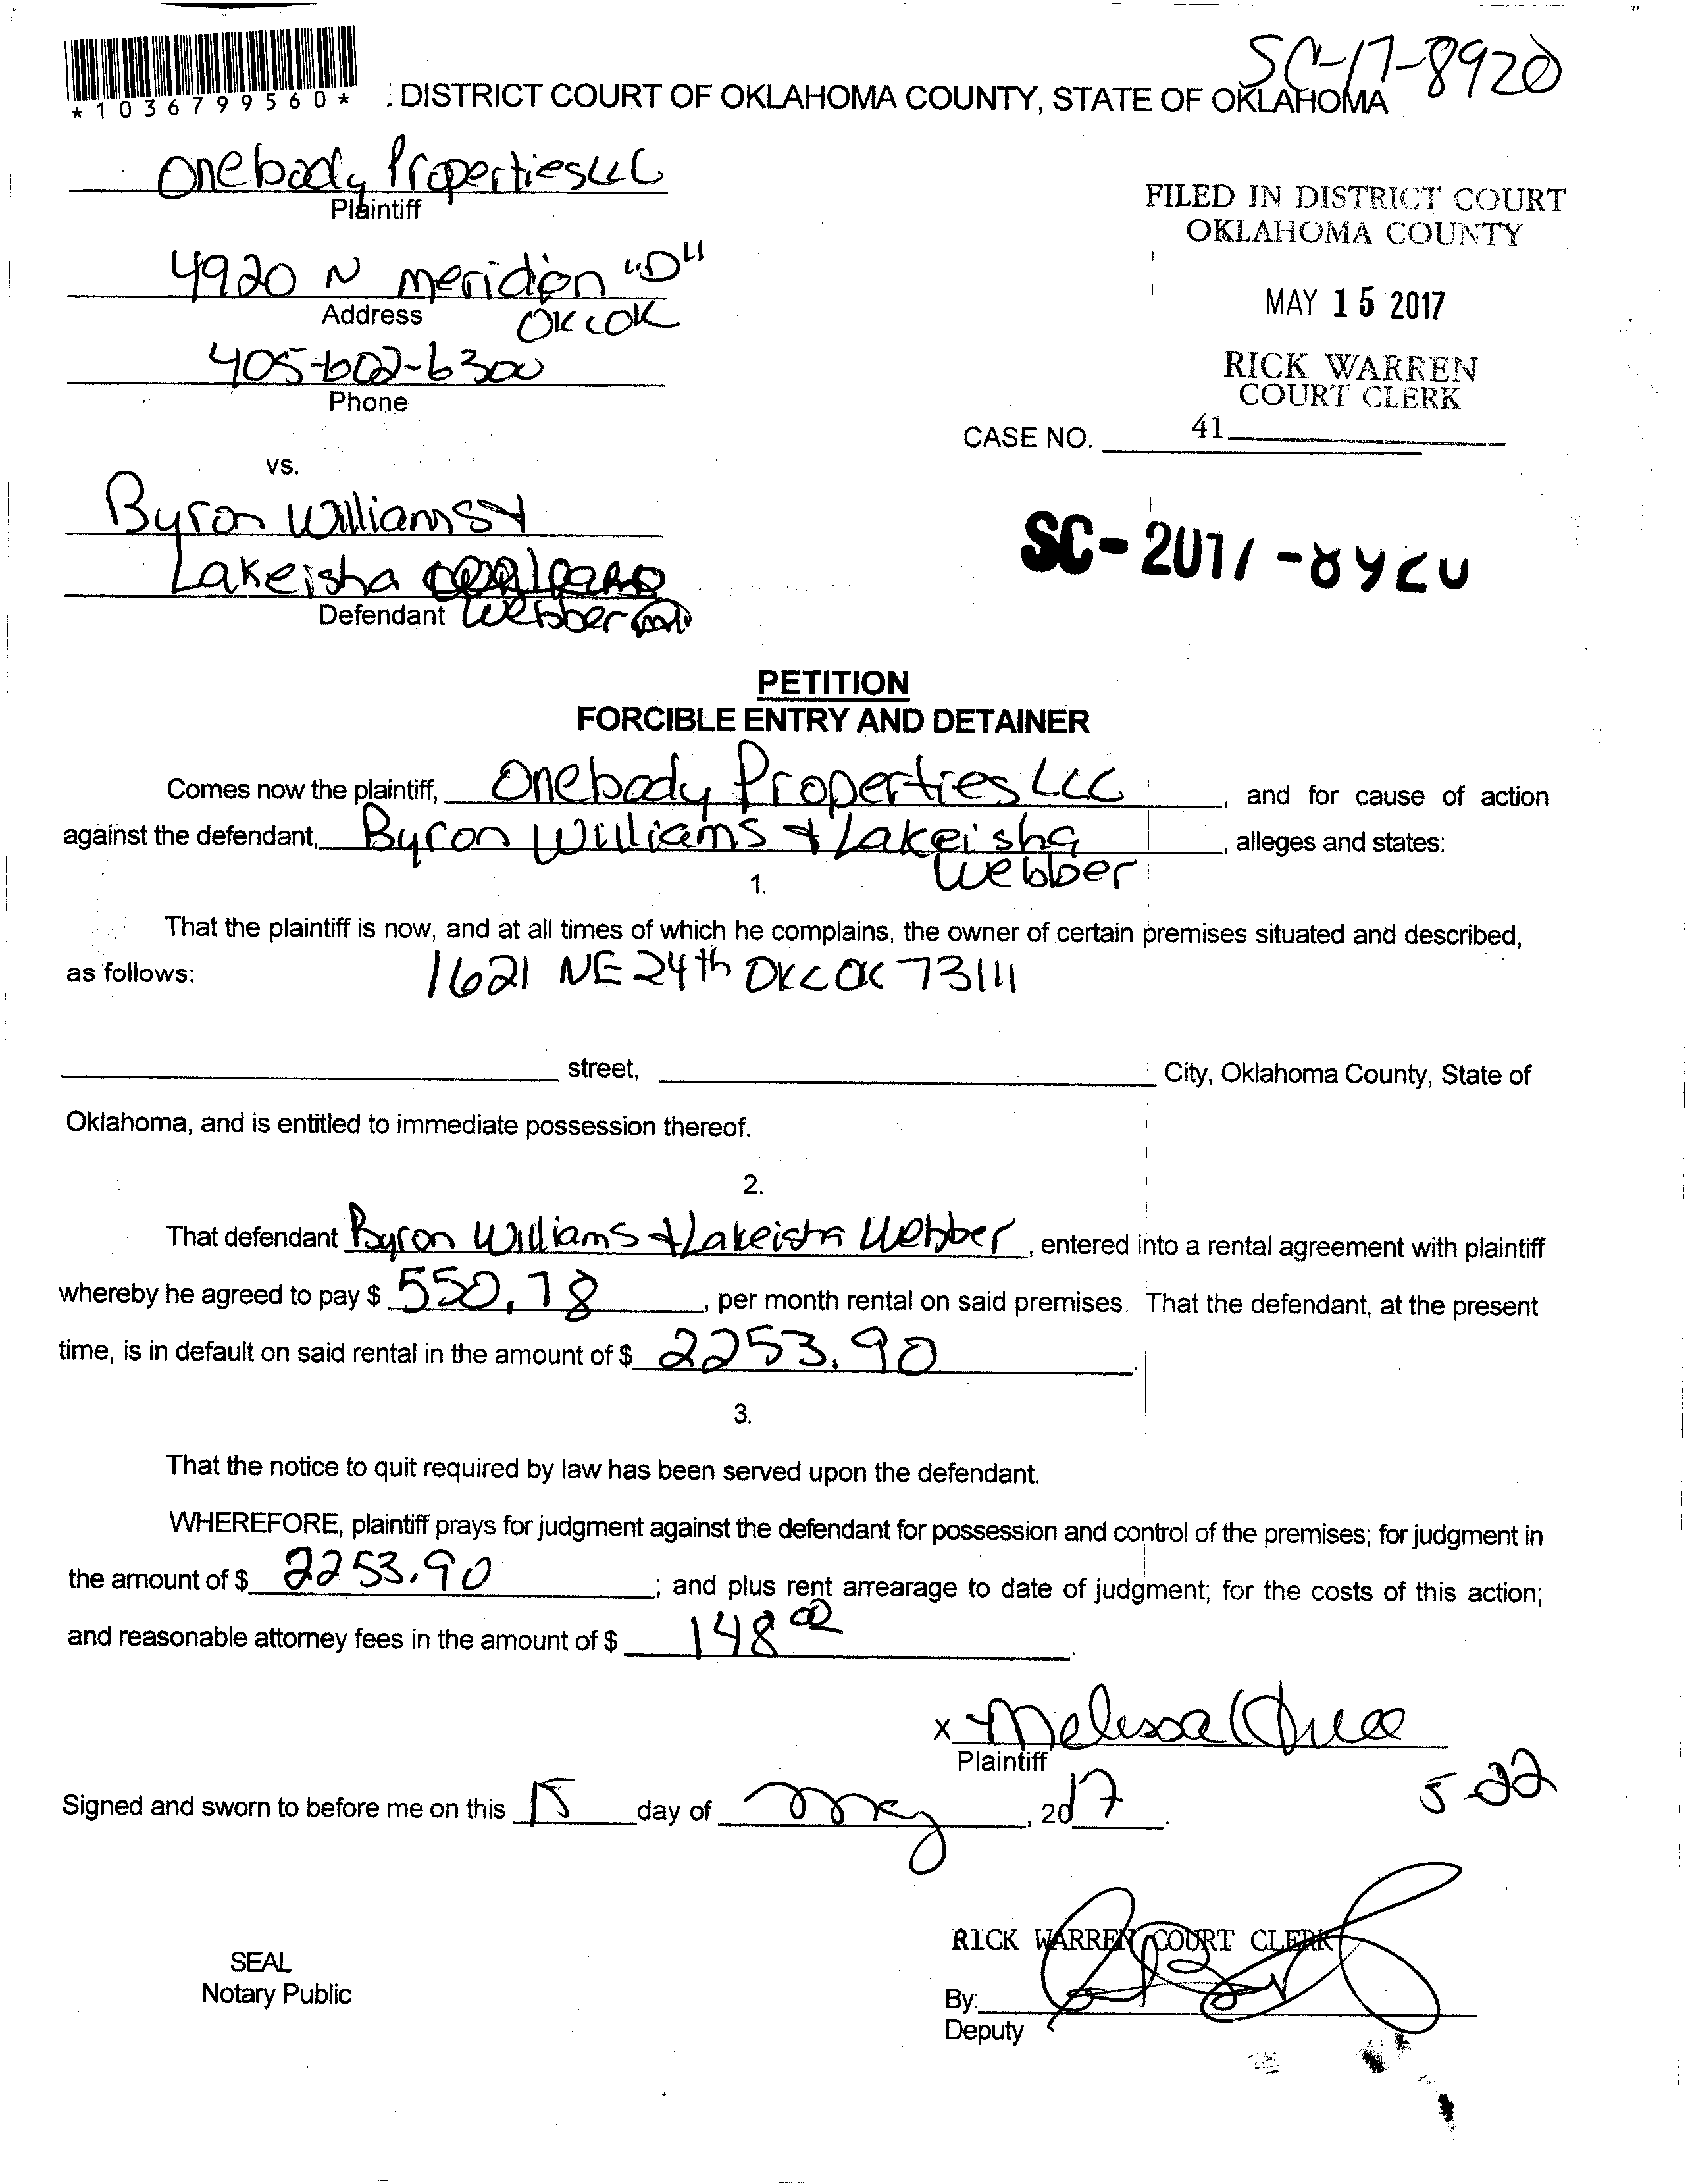 SC-17-8920
*1036799560*
: DISTRICT COURT OF OKLAHOMA COUNTY, STATE OF OKLAHOMA
Onebody Properties LLC
Plaintiff
FILED IN DISTRICT COURT
OKLAHOMA COUNTY
4920 N meridian "D"
Address
OKC OK
MAY 15 2017
405-602-6300
Phone
RICK WARREN
COURT CLERK
CASE NO. 41
vs.
Byron Williams &
Lakeisha
Defendant Webber
SC-2017-8920
PETITION
FORCIBLE ENTRY AND DETAINER
Comes now the plaintiff, Onebody Properties LLC, and for cause of action
against the defendant, Byron Williams & Lakeisha, alleges and states:
Webber
1.
That the plaintiff is now, and at all times of which he complains, the owner of certain premises situated and described,
as follows: 1621 NE 24th OKC OK 73111
street, City, Oklahoma County, State of
Oklahoma, and is entitled to immediate possession thereof.
2.
That defendant Byron Williams & Lakeisha Webber, entered into a rental agreement with plaintiff
whereby he agreed to pay $ 550.78, per month rental on said premises. That the defendant, at the present
time, is in default on said rental in the amount of $ 2253.90.
3.
That the notice to quit required by law has been served upon the defendant.
WHEREFORE, plaintiff prays for judgment against the defendant for possession and control of the premises; for judgment in
the amount of $ 2253.90; and plus rent arrearage to date of judgment; for the costs of this action;
and reasonable attorney fees in the amount of $ 148.00.
x Melissa
Plaintiff
5-22
Signed and sworn to before me on this 15 day of May, 2017.
RICK WARREN COURT CLERK
SEAL
Notary Public
By:
Deputy